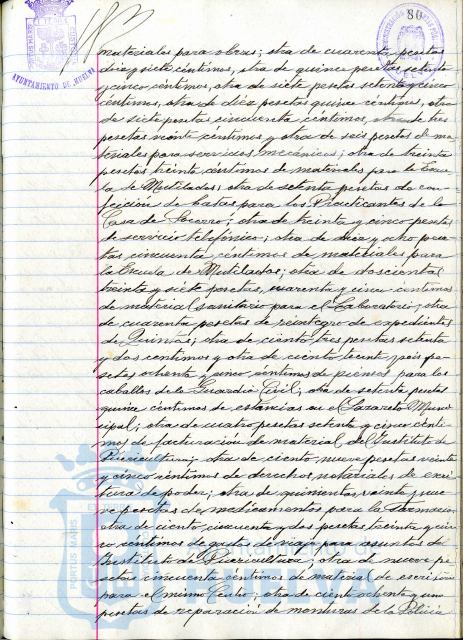 80
AYUNTAMIENTO DE HUELVA
materiales para obras; otra de cuarenta pesetas
diez y siete céntimos, otra de quince pesetas setenta
y cinco céntimos, otra de siete pesetas setenta y cinco
céntimos, otra de diez pesetas quince céntimos, otra
de siete pesetas cincuenta céntimos, otra de tres
pesetas veinte céntimos y otra de seis pesetas de ma-
teriales para servicios mecánicos; otra de treinta
pesetas treinta céntimos de materiales para la Escue-
la de Mutilados; otra de setenta pesetas de con-
fección de batas para los Practicantes de la
Casa de Socorro; otra de treinta y cinco pesetas
de servicio telefónico; otra de diez y ocho pese-
tas cincuenta céntimos de materiales para
la Escuela de Mutilados; otra de doscientas
treinta y siete pesetas, cuarenta y cinco céntimos
de material sanitario para el Laboratorio; otra
de cuarenta pesetas de reintegro de expedientes
de Quintas; otra de ciento tres pesetas setenta
y dos céntimos y otra de ciento veinte y seis pe-
setas ochenta y un céntimos de piensos para los
caballos de la Guardia Civil; otra de setenta pesetas
quince céntimos de estancias en el Lazareto Muni-
cipal; otra de cuatro pesetas setenta y cinco cénti-
mos de facturación de material del Instituto de
Puericultura; otra de ciento nueve pesetas veinte
y cinco céntimos de derechos notariales de escri-
tura de poder; otra de quinientas veinte y nue-
ve pesetas de medicamentos para la Farmacia;
otra de ciento cincuenta y dos pesetas treinta y cin-
co céntimos de gastos de viaje para asuntos de
Instituto de Puericultura; otra de nueve pe-
setas cincuenta céntimos de material de escritorio
para el mismo Centro; otra de ciento ochenta y una
pesetas de reparación de monturas de la Policía
Ayuntamiento de
HUELVA
PORTUS MARIS